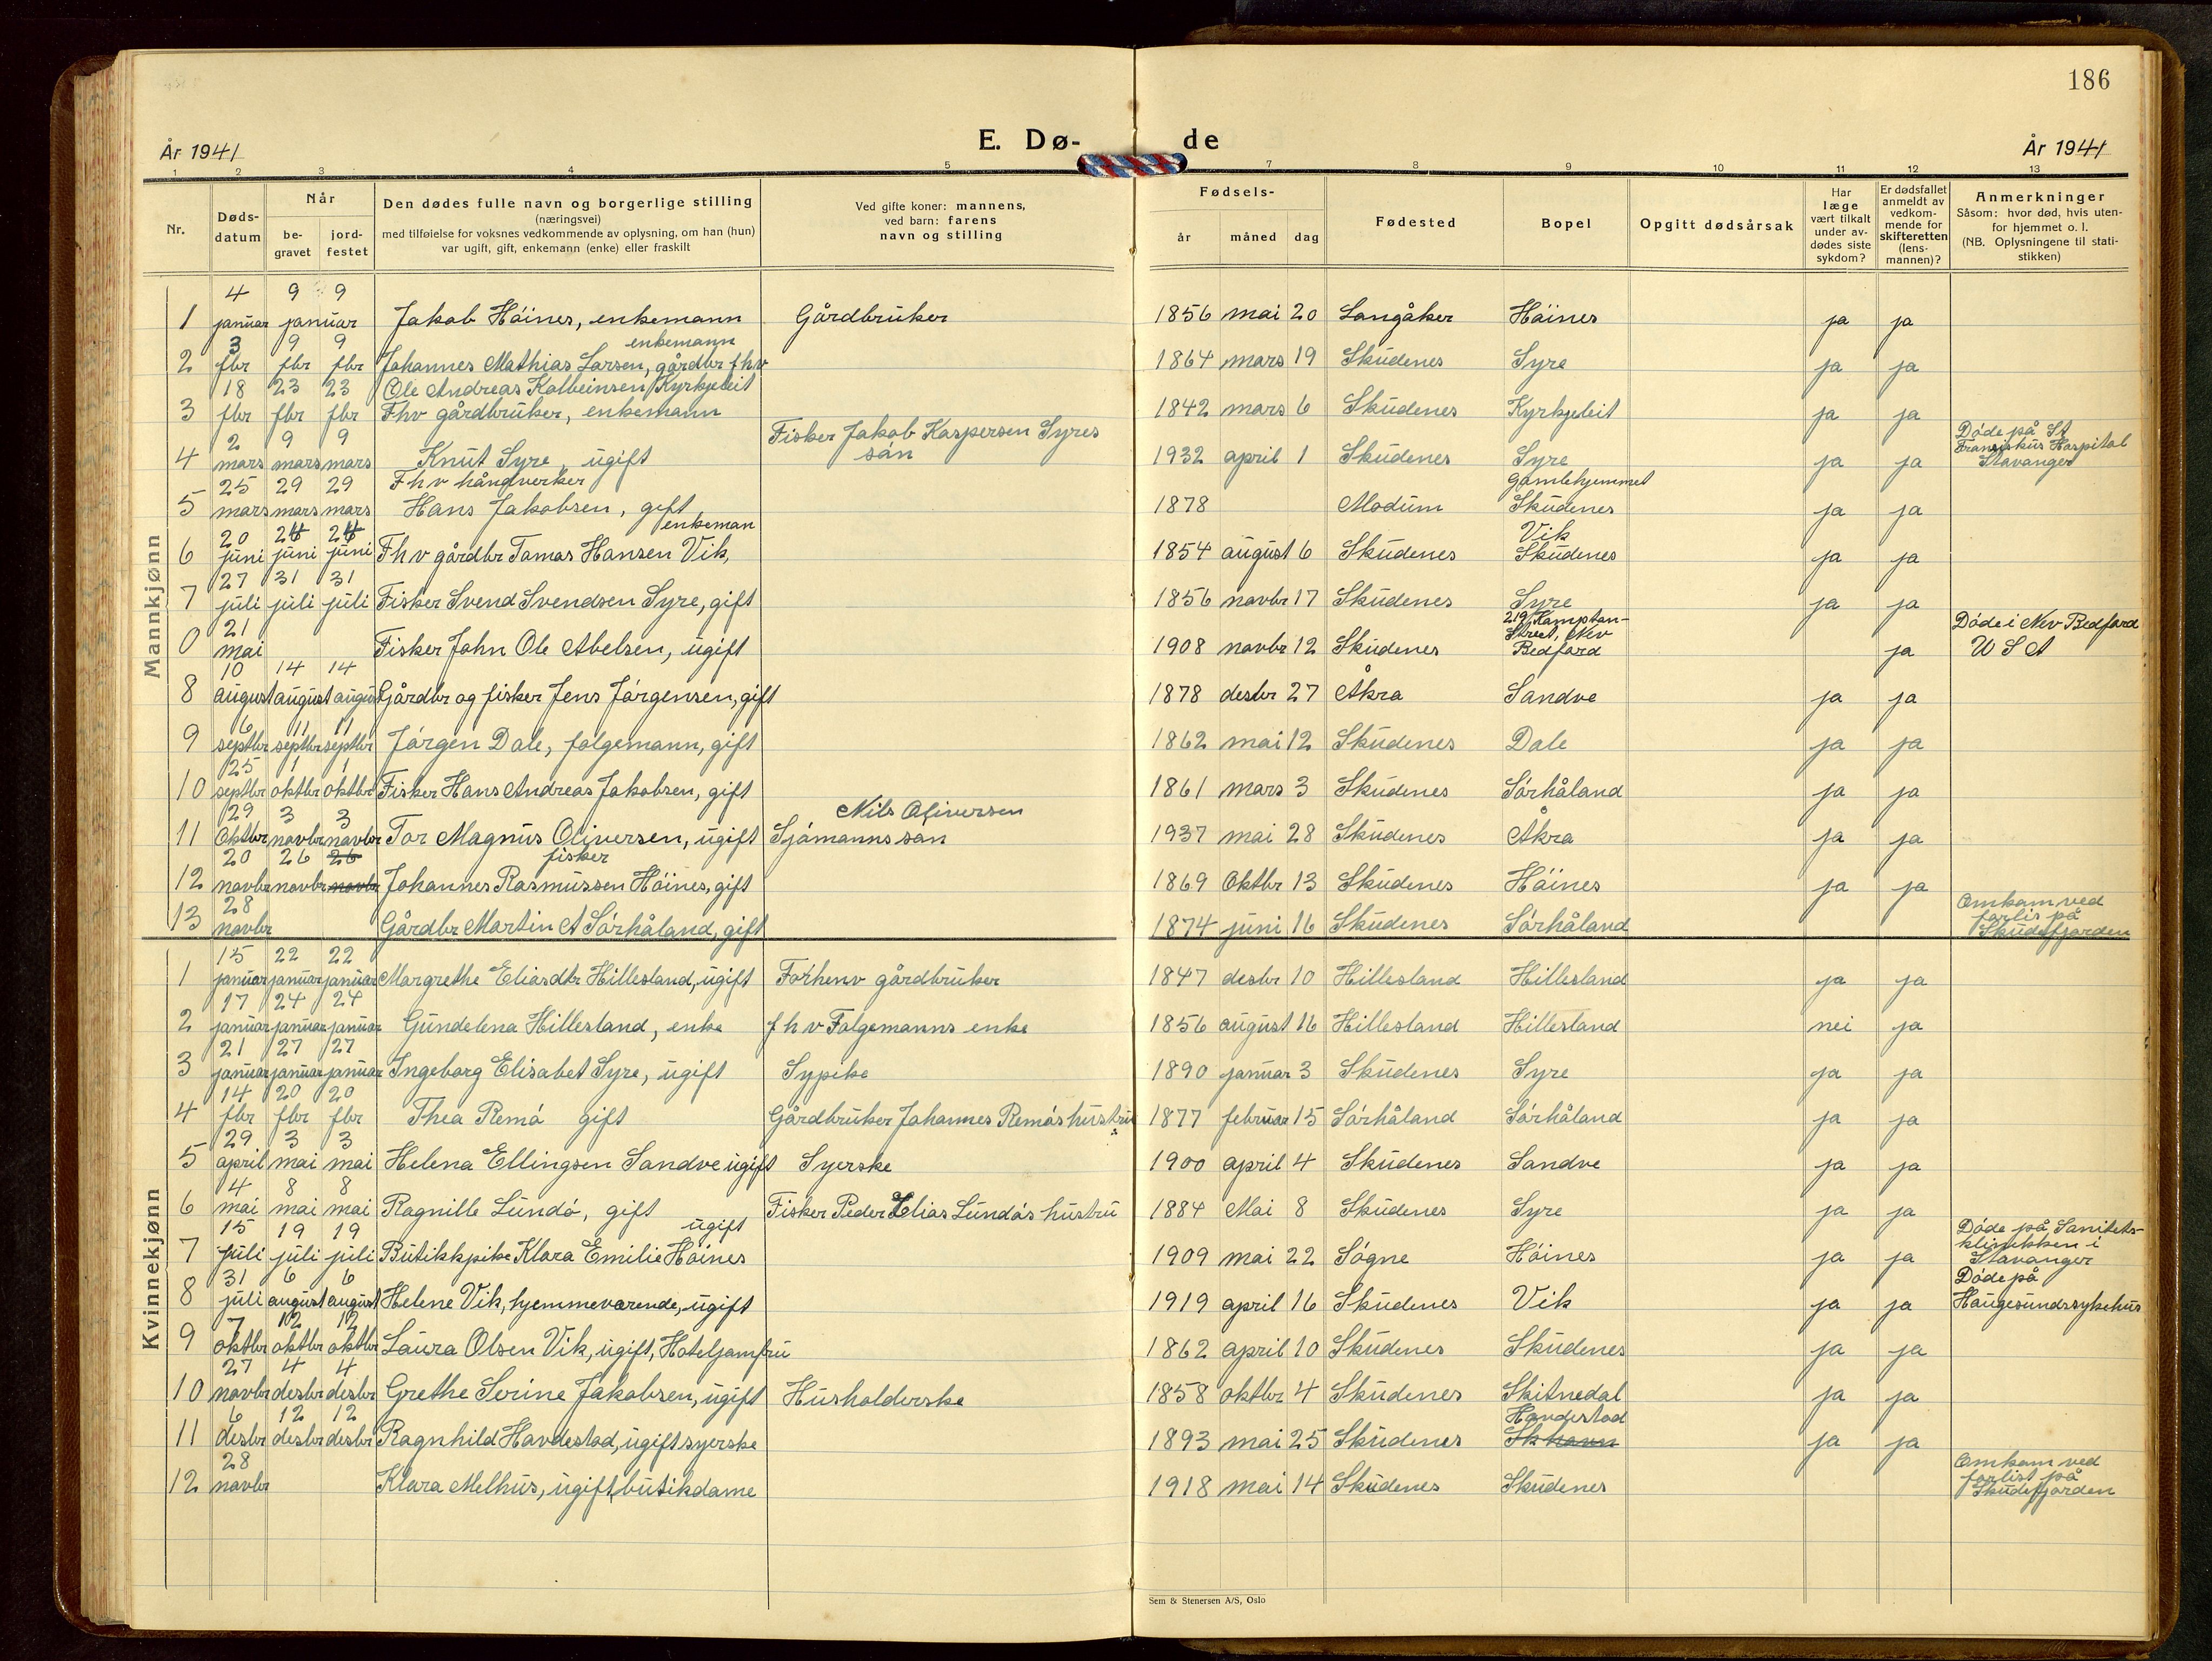 186
År 1941
E. Dø-
de
År 1941
1 2 3 4 5 7 8 9 10 11 12 13
Nr.
Døds-
datum
Når
be-
gravet
jord-
festet
Den dødes fulle navn og borgerlige stilling
(næringsvei)
med tilføielse for voksnes vedkommende av oplysning, om han (hun)
var ugift, gift, enkemann (enke) eller fraskilt
Ved gifte koner: mannens,
ved barn: farens
navn og stilling
Fødsels-
år måned dag
Fødested
Bopel
Opgitt dødsårsak
Har
læge
vært tilkalt
under av-
dødes siste
sykdom?
Er dødsfallet
anmeldt av
vedkom-
mende for
skifteretten
(lens-
mannen)?
Anmerkninger
Såsom: hvor død, hvis uten-
for hjemmet o. l.
(NB. Oplysningene til stati-
stikken)
Mannkjønn
4 9 9
1 januar januar Jakob Höines, enkemann Gårdbruker 1856 mai 20 Langåker Höines ja ja
3 9 9 enkemann
2 fbr fbr fbr Johannes Mathias Larsen, gårdbr fhv 1864 mars 19 Skudenes Syre ja ja
18 23 23 Ole Andreas Kolbeinsen Kyrkjeleit
3 fbr fbr fbr Fhv gårdbruker, enkemann 1842 mars 6 Skudenes Kyrkjeleit ja ja
2 9 9 Fisker Jakob Kaspersen Syres Döde på St
Fransiskus Hospital
4 mars mars mars Knut Syre, ugift sön 1932 april 1 Skudenes Syre ja ja Stavanger
25 29 29 Fhv håndverker Gamlehjemmet
5 mars mars mars Hans Jakobsen, gift 1878 Modum Skudenes ja ja
20 24 24 enkeman Vik
6 juni juni juni Fhv gårdbr Tomas Hansen Vik, 1854 august 6 Skudenes Skudenes ja ja
27 31 31
7 juli juli juli Fisker Svend Svendsen Syre, gift 1856 novbr 17 Skudenes Syre ja ja
21 219 Kampton-
Street, New Döde i New Bedford
0 mai Fisker John Ole Abelsen, ugift 1908 novbr 12 Skudenes Bedford ja U S A
10 14 14
8 august august august Gårdbr og fisker Jens Jörgensen, gift 1878 desbr 27 Åkra Sandve ja ja
6 11 11
9 septbr septbr septbr Jörgen Dale, folgemann, gift 1862 mai 12 Skudenes Dale ja ja
25 1 1
10 septbr oktbr oktbr Fisker Hans Andreas Jakobsen, gift 1861 mars 3 Skudenes Sörhåland ja ja
29 3 3 Nils Oliversen
11 Oktbr novbr novbr Tor Magnus Oliversen, ugift Sjömanns sön 1937 mai 28 Skudenes Åkra ja ja
20 26 26 fisker
12 novbr novbr novbr Johannes Rasmussen Höines, gift 1869 Oktbr 13 Skudenes Höines ja ja
28 Omkom ved
forlis på
13 novbr Gårdbr Martin A Sörhåland, gift 1874 juni 16 Skudenes Sörhåland Skudefjorden
Kvinnekjønn
15 22 22
1 januar januar januar Margrethe Eliasdtr Hillesland, ugift Forhenv gårdbruker 1847 desbr 10 Hillesland Hillesland ja ja
17 24 24
2 januar januar januar Gundelena Hillesland, enke fhv Folgemanns enke 1856 august 16 Hillesland Hillesland nei ja
21 27 27
3 januar januar januar Ingeborg Elisabet Syre, ugift Sypike 1890 januar 3 Skudenes Syre ja ja
14 20 20
4 fbr fbr fbr Thea Remö gift Gårdbruker Johannes Remös hustru 1877 februar 15 Sörhåland Sörhåland ja ja
29 3 3
5 april mai mai Helena Ellingsen Sandve ugift Syerske 1900 april 4 Skudenes Sandve ja ja
4 8 8
6 mai mai mai Ragnille Lundö, gift Fisker Peder Elias Lundö's hustru 1884 Mai 8 Skudenes Syre ja ja
15 19 19 ugift Döde på Sanitets-
klinikken i
7 juli juli juli Butikkpike Klara Emilie Höines 1909 mai 22 Sögne Höines ja ja Stavanger
31 6 6 Döde på
8 juli august august Helene Vik, hjemmeværende, ugift 1919 april 16 Skudenes Vik ja ja Haugesunds sykehus
7 12 12
9 oktbr oktbr oktbr Laura Olsen Vik, ugift, Hoteljomfru 1862 april 10 Skudenes Skudenes ja ja
27 4 4
10 novbr desbr desbr Grethe Serine Jakobsen, ugift Husholderske 1858 oktbr 4 Skudenes Skitnedal ja ja
6 12 12 Hovdestad
11 desbr desbr desbr Ragnhild Hovdestad, ugift syerske 1893 mai 25 Skudenes Skhavn ja ja
28 Omkom ved
forlist på
12 novbr Klara Melhus, ugift, butikdame 1918 mai 14 Skudenes Skudenes Skudefjorden
Sem & Stenersen A/S, Oslo